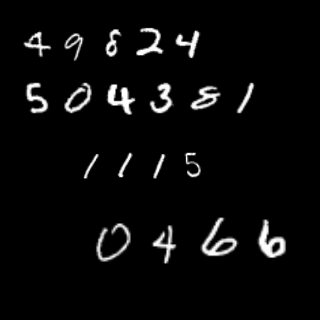 49824
504381
1115
0466